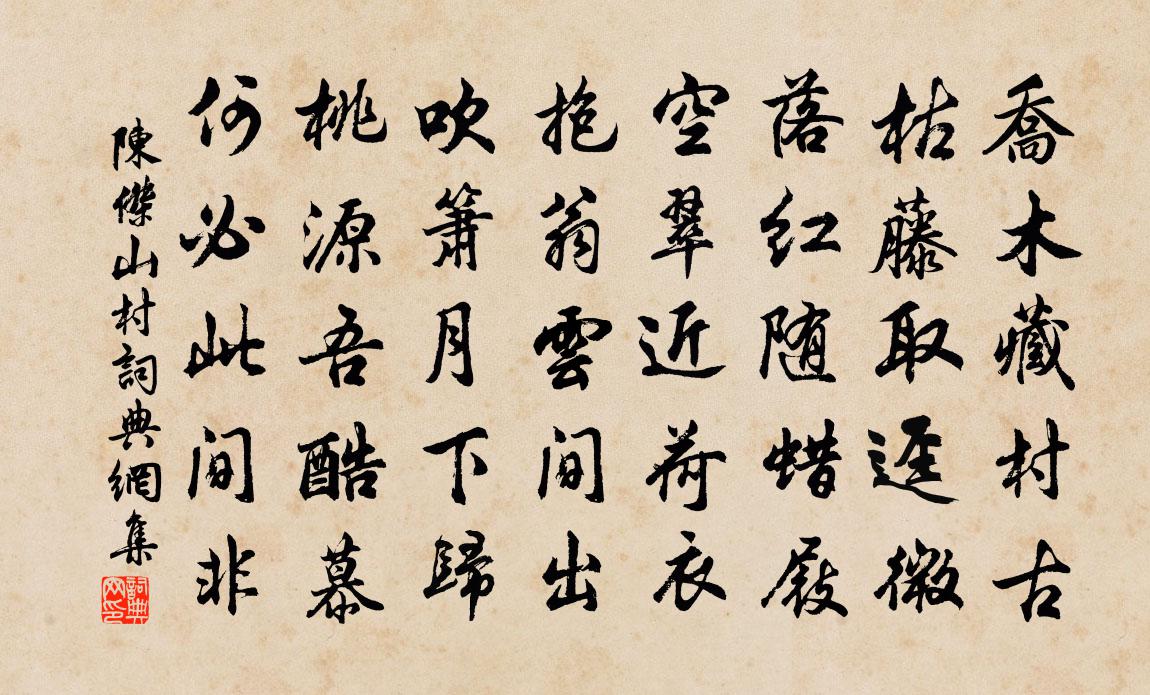 喬木藏村古
枯藤取逕微
落红随蜡屐
空翠近荷衣
抱翁雲間出
吹簫月下歸
桃源吾酷慕
何必此間非
陳傑山村詞典網集
詞典网印